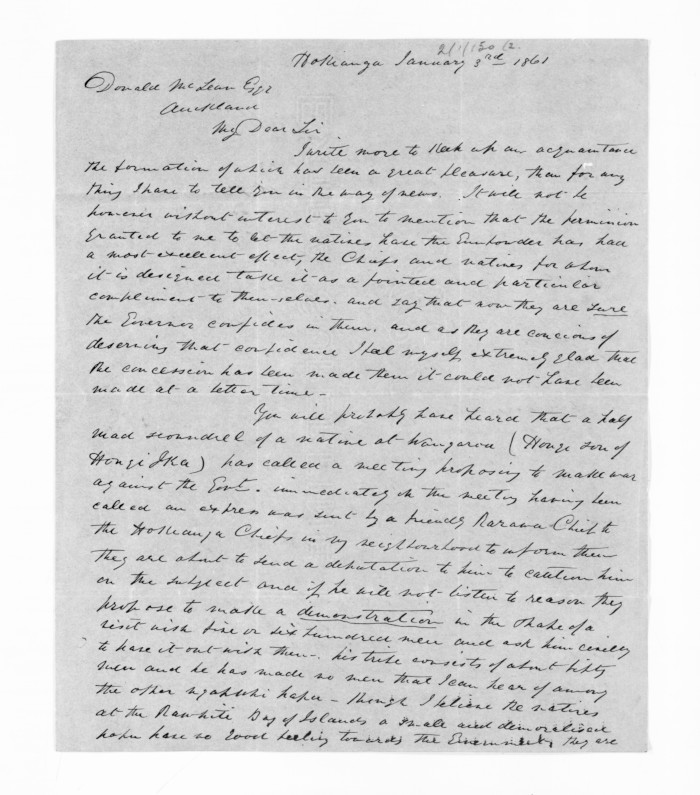 Hokianga January 3rd 1861
Donald McLean Esqr
Auckland
My Dear Sir
I write more to keek up our acquaintance
the formation of which has been a great pleasure, than for any
thing I have to tell you in the way of news. It will not be
however without interest to you to mention that the permision
granted to me to let the natives have the Gunpowder has had
a most excellent effect, the Chiefs and natives for whom
it is designed take it as a pointed and particular
compliment to them-selves. and say that now they are sure
the Governor confides in them. and as they are concious of
deserving that confidence I feel myself extremely glad that
the concession has been made them it could not have been
made at a better time -
You will probably have heard that a half
mad scoundrel of a native at Wangaroa (Hongi son of
Hongi Ika) has called a meeting proposing to make war
against the Govt. immediately on the meeting having been
called an express was sent by a friendly Rarawa Chief to
the Hokianga Chiefs in my neighbourhood to inform them
they are about to send a deputation to him to caution him
on the subject and if he will not listen to reason they
propose to make a demonstration in the shape of a
visit with five or six hundred men and ask him civilly
to have it out with them - his tribe consists of about fifty
men and he has made no men that I can hear of among
the other ngapuhi hapu - though I believe the natives
at the Rawhite Bay of Islands a small and demoralised
hapu have no good feeling towards the Government, they are